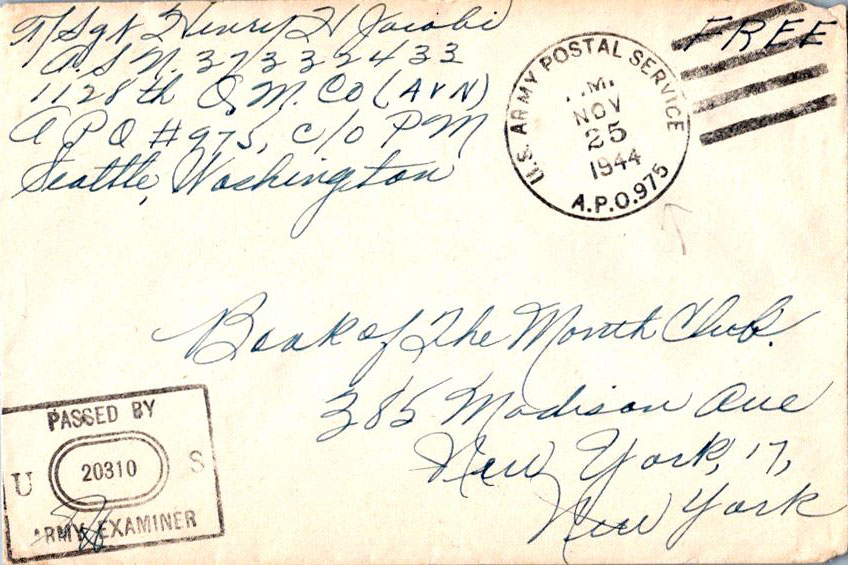 T/Sgt Henry H Jacobi
A.S.N. 37332433
1128th Q.M. Co (AVN)
A.P.O #975, c/o PM
Seattle, Washington
FREE
U.S. ARMY POSTAL SERVICE
.M.
NOV
25
1944
A.P.O. 975
Book of The Month Club.
385 Madison Ave
New York, 17,
New York
PASSED BY
U 20310 S
ARMY EXAMINER